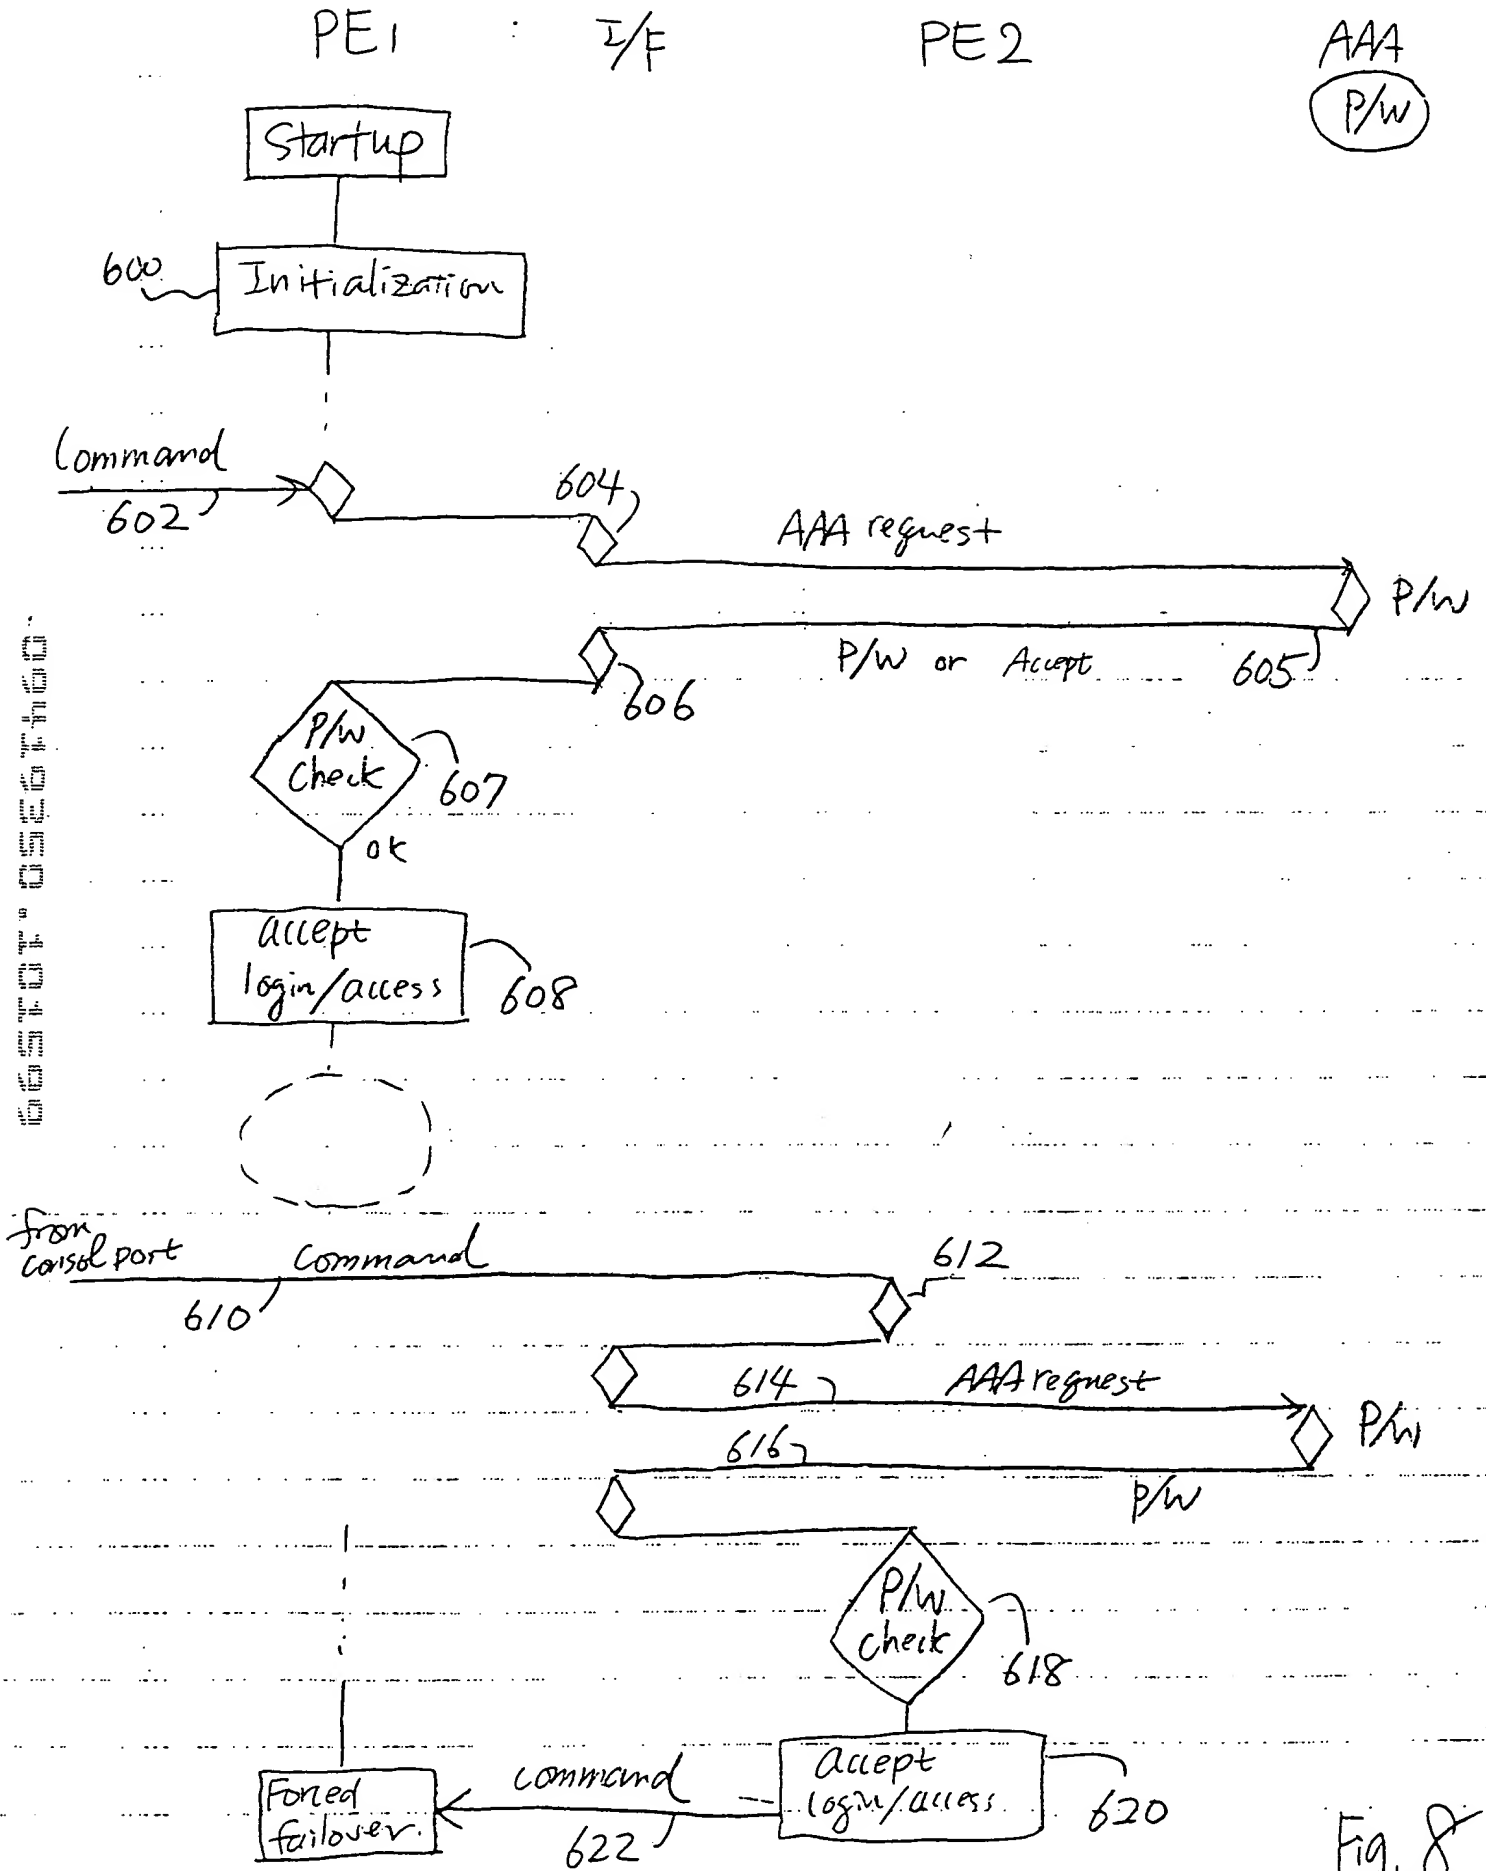 PE1 I/F PE2 AAA
P/W
Startup
600 Initialization
Command
602
604
AAA request
P/W
P/W or Accept
605
606
P/W
check
607
ok
accept
login/access
608
from
consol port
command
610
612
614
AAA request
P/W
616
P/W
P/W
check
618
accept
login/access
620
command
622
Forced
failover.
Fig. 8
09419350.101599